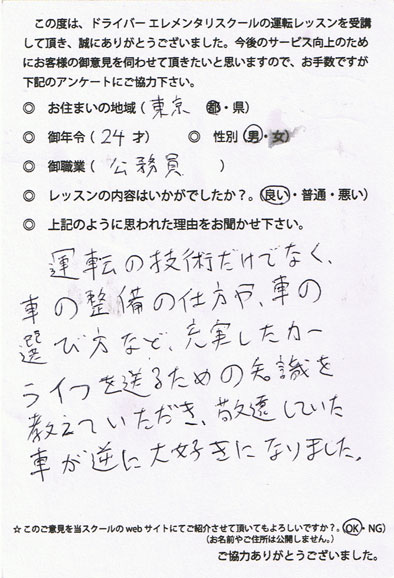 この度は、ドライバー エレメンタリスクールの運転レッスンを受講
して頂き、誠にありがとうございました。今後のサービス向上のため
にお客様の御意見を伺わせて頂きたいと思いますので、お手数ですが
下記のアンケートにご協力下さい。
◎ お住まいの地域(東京 都・県)
◎ 御年令(24才) ◎ 性別(男・女)
◎ 御職業(公務員)
◎ レッスンの内容はいかがでしたか?。(良い・普通・悪い)
◎ 上記のように思われた理由をお聞かせ下さい。
運転の技術だけでなく、
車の整備の仕方や、車の
選び方など、充実したカー
ライフを送るための知識を
教えていただき、敬遠していた
車が逆に大好きになりました。
☆このご意見を当スクールの web サイトにてご紹介させて頂いてもよろしいですか?。(OK・NG)
(お名前やご住所は公開しません。)
ご協力ありがとうございました。